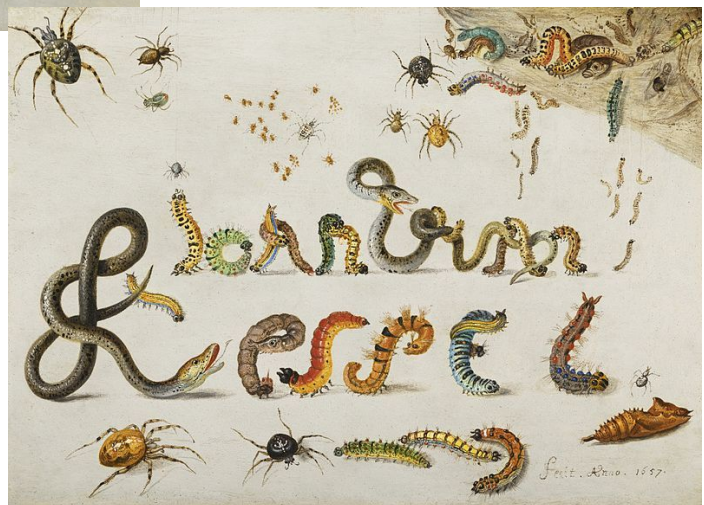 Ioan van
Kessel
fecit. Anno. 1657.